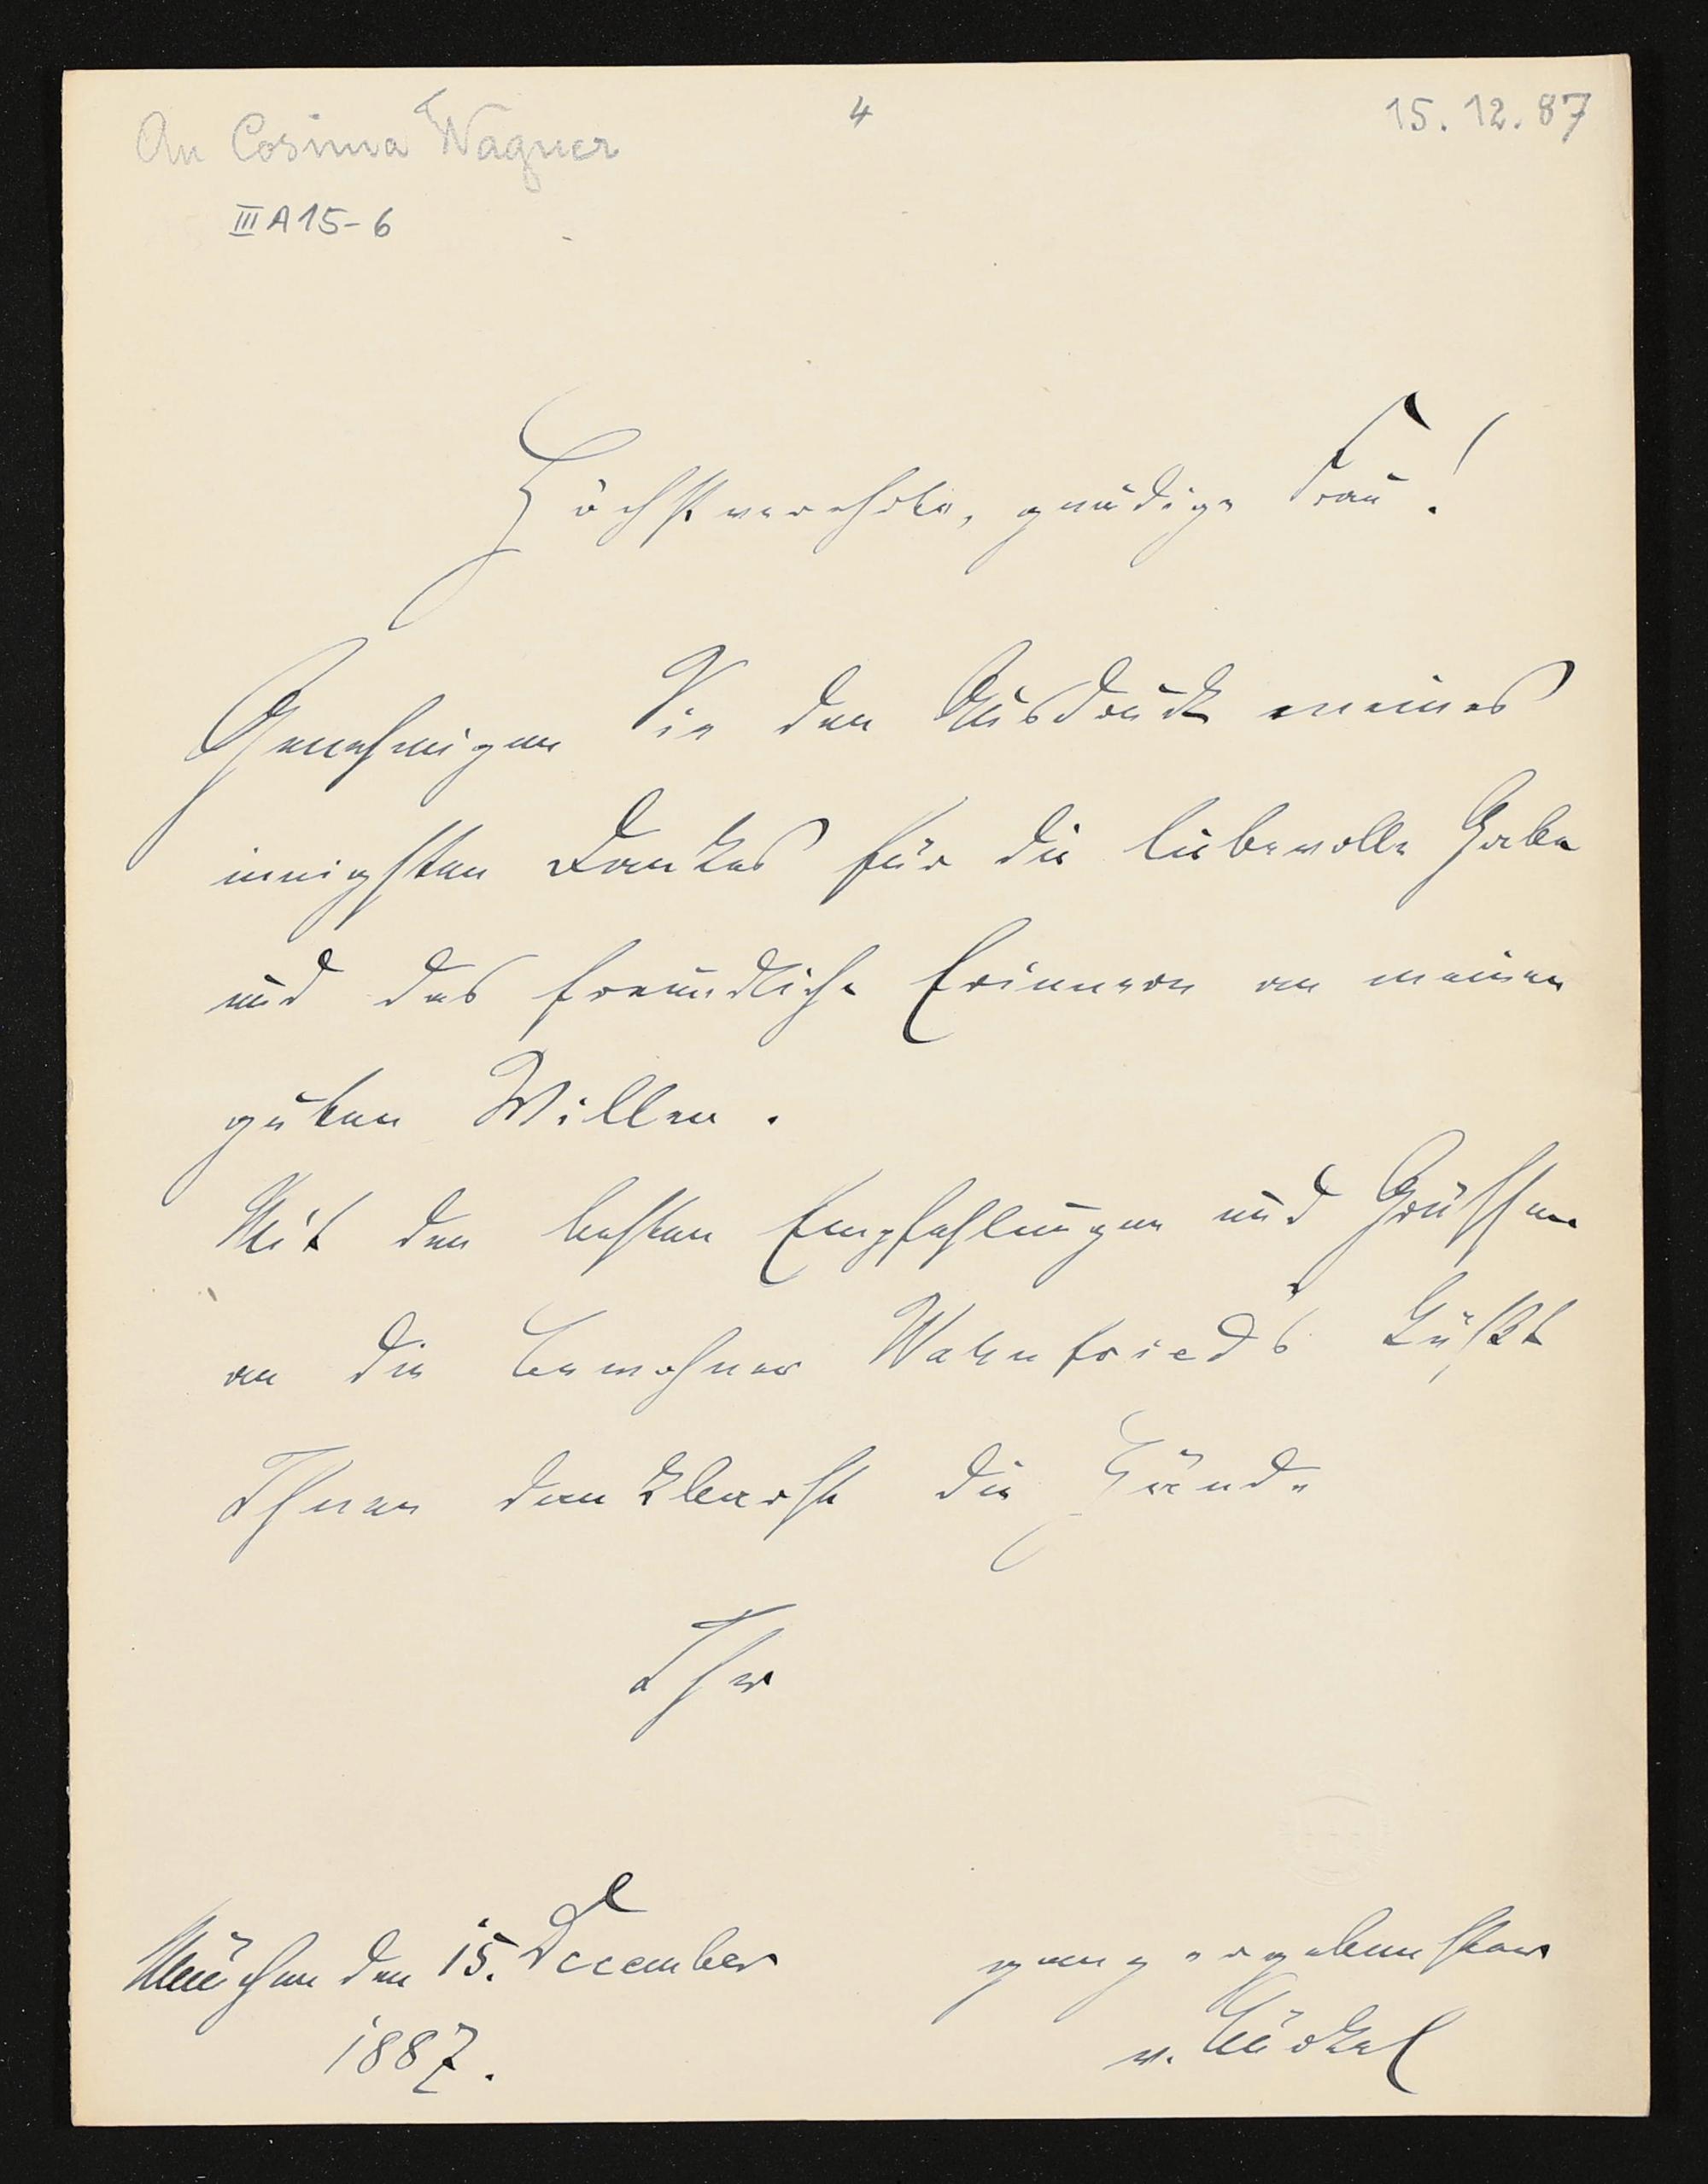 An Cosima Wagner
4
15.12.87
III A 15-6
Höchstverehrte, gnädige Frau!
Genehmigen Sie den Ausdruck meines
innigsten Dankes für die liebevolle Gabe
und das freundliche Erinnern an meinen
guten Willen.
Mit den besten Empfehlungen und Grüssen
an die Bewohner Wahnfrieds küßt
Ihnen dankbarst die Hände
Ihr
München den 15. December
1887.
ganz ergebenster
v.